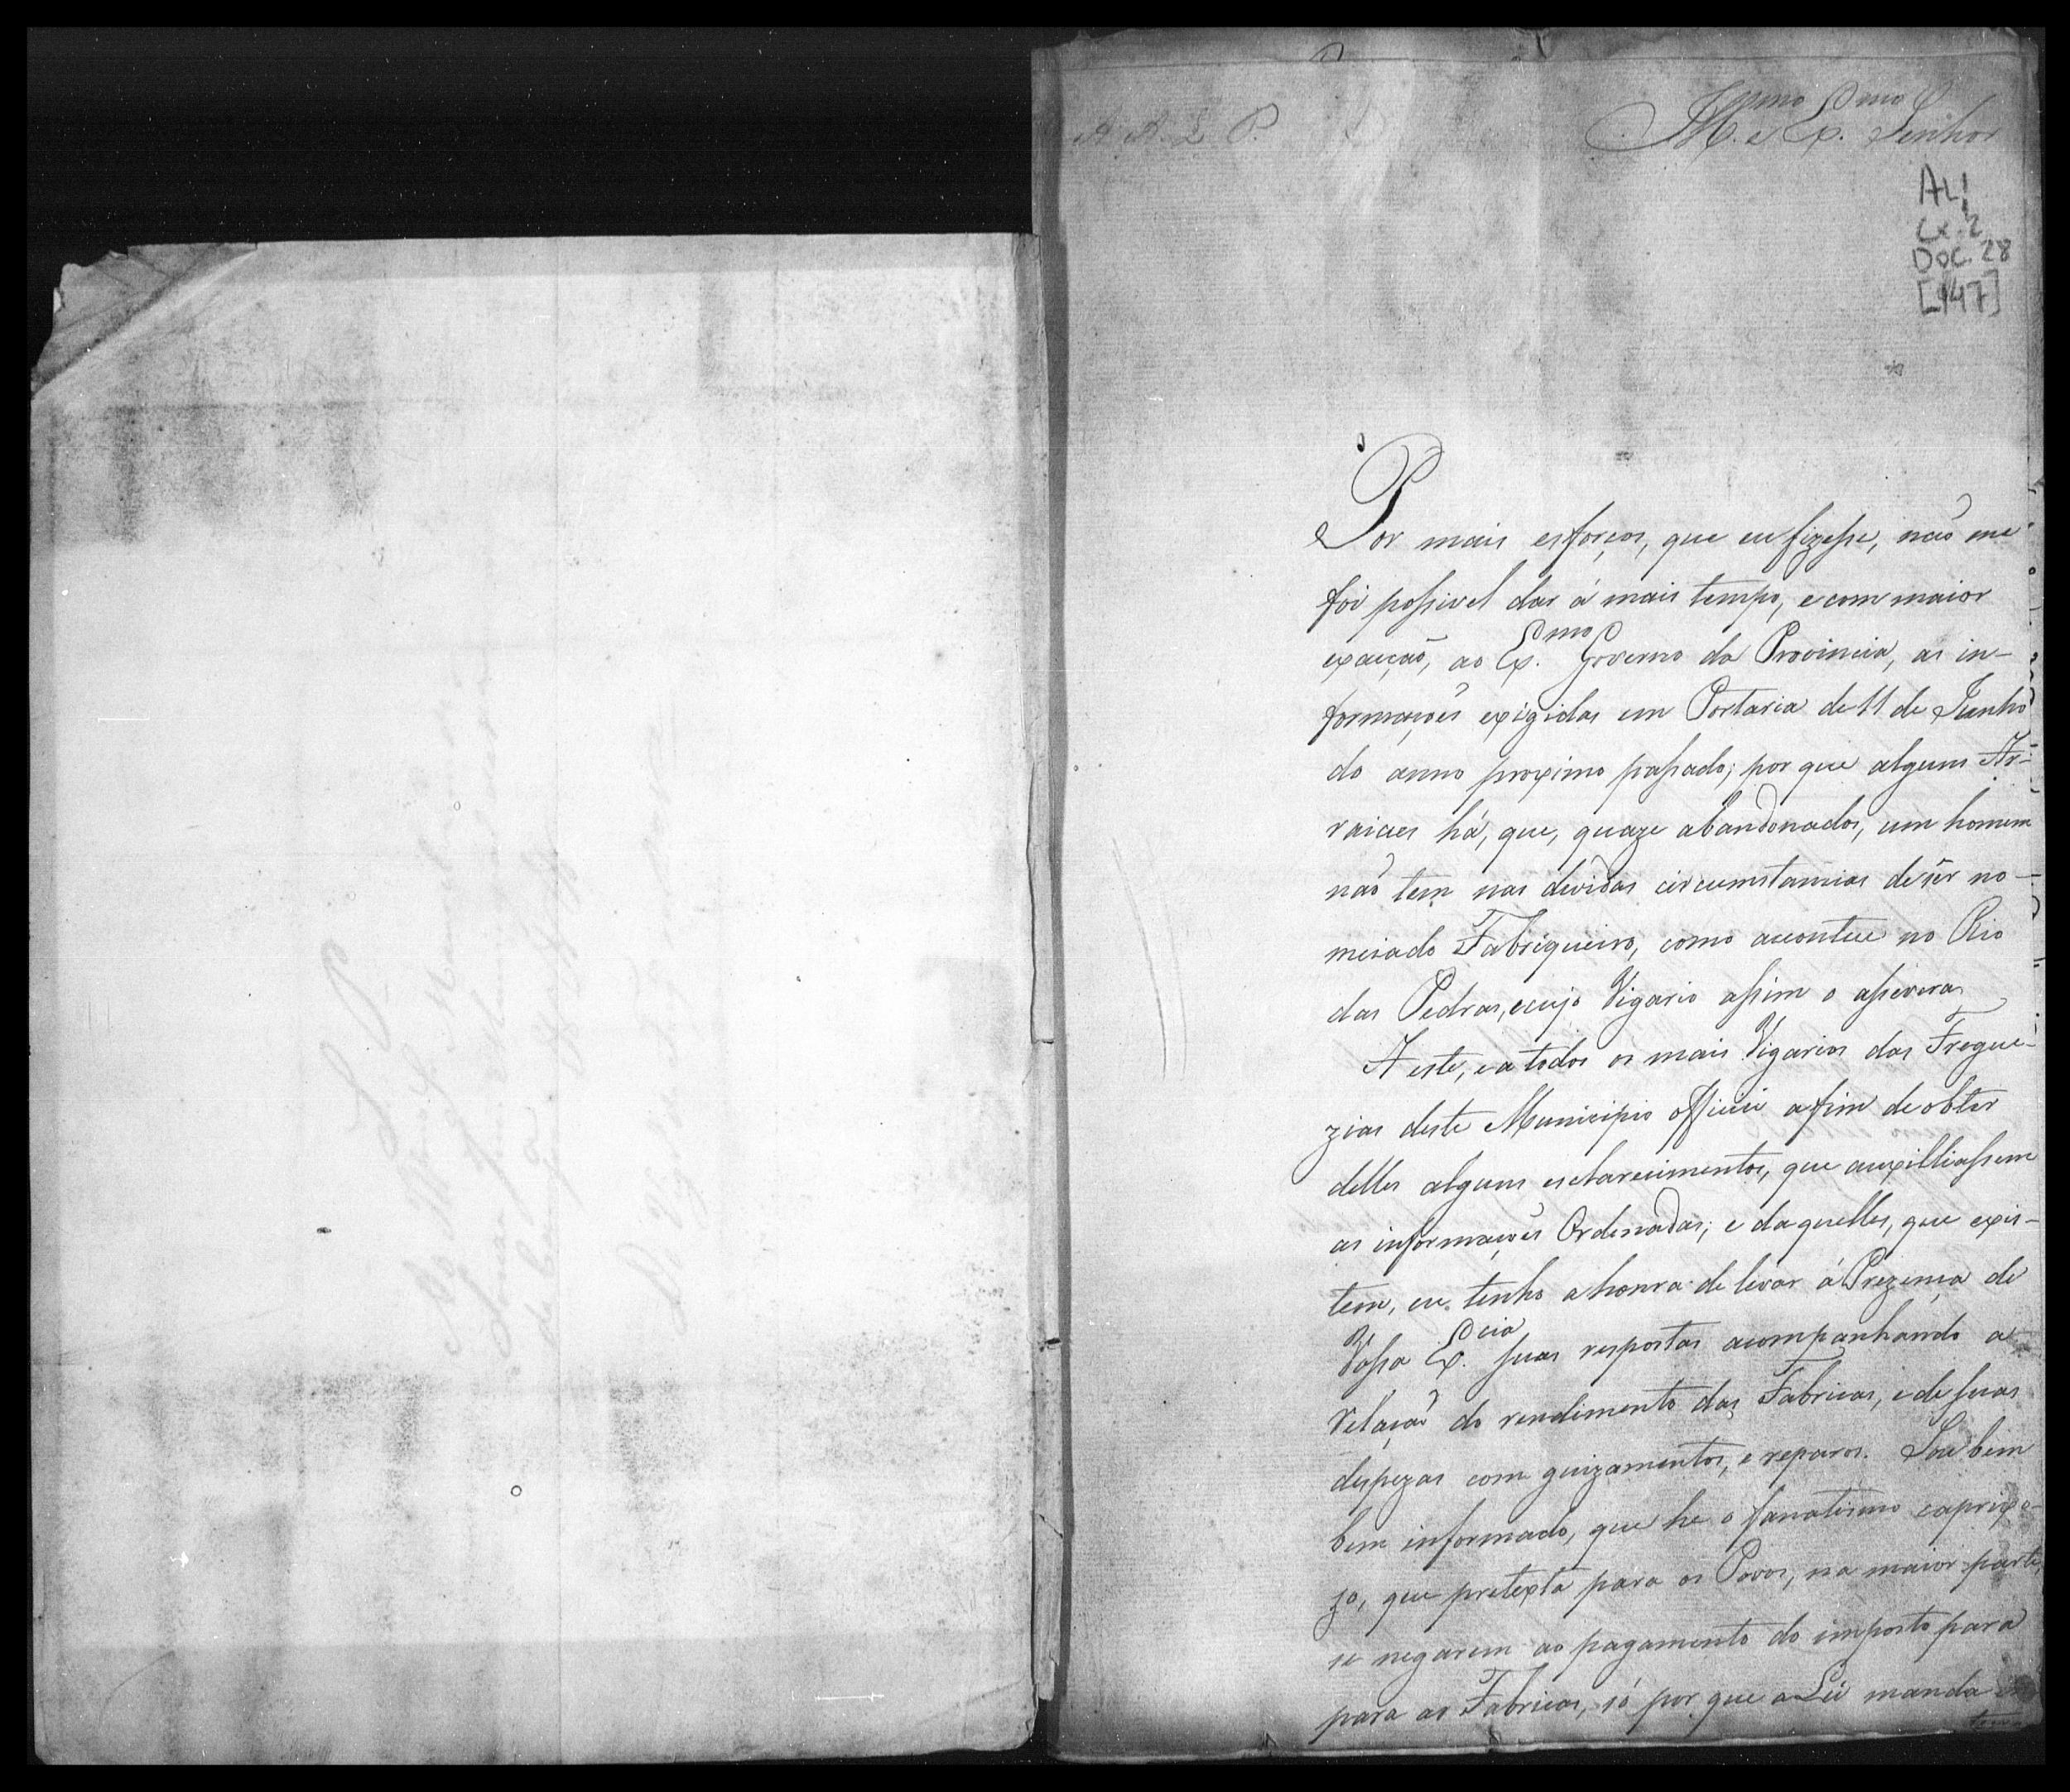 A. A. L. P.
Ill.mo e Ex.mo Senhor
AL1
Cx. 2
Doc. 28
[147]
Por mais esforços, que eu fizesse, naõ me
foi possivel dar á mais tempo, e com maior
exacçaõ, ao Ex.mo Governo da Provincia, as in-
formaçoẽs exigidas em Portaria de 11 de Junho
do anno proximo passado; por que alguns Ar-
raiaes há, que, quaze abandonados, um homem
naõ tem nas devidas circumstancias de sêr no-
meiado Fabriqueiro, como acontece no Rio
das Pedras, cujo Vigario assim o assevera.
A este, e a todos os mais Vigarios das Fregue-
zias deste Municipio officiei afim de obter
delles alguns esclarecimentos, que auxilliassem
as informaçoẽs Ordenadas; e daquelles, que exis-
tem, eu tenho a honra de levar á Prezença de
Vossa Ex.cia suas respostas acompanhando a
relaçaõ do rendimento das Fabricas, e de suas
despezas com guizamentos, e reparos. Sou bem
bem informado, que he o fanatismo caprixo-
zo, que pretexta para os Povos, na maior parte,
se negarem ao pagamento do imposto para
para as Fabricas, só por que a Lei manda